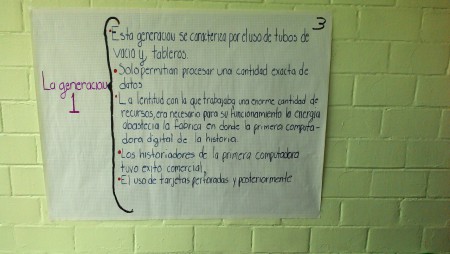 3
La generaciou
1
•Esta generaciou se caracteriza por el uso de tubos de
vacio y, tableros.
•Solo permitian procesar una contidad exacta de
datos
•La lentitud con la que trabajaba una enorme cantidad de
recursos, era necesario para su funcionamiento la energia
abastecia la fabrica en donde la primera computa-
dora digital de la historia.
•Los historiadores de la primera computadora
tuvo exito comercial,
•El uso de tarjetas perforadas y posteriormente